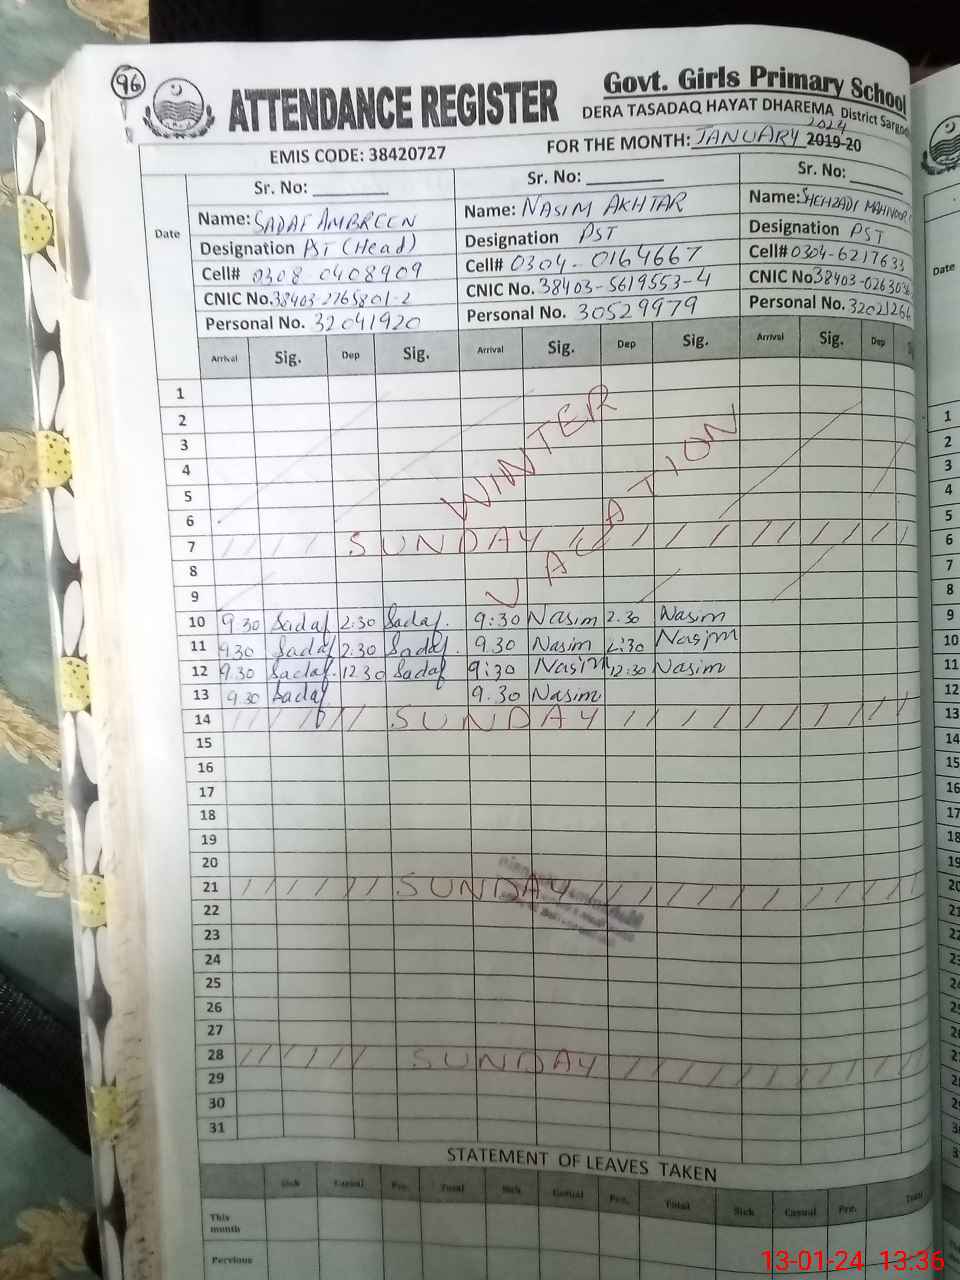 96
ATTENDANCE REGISTER
Govt. Girls Primary School
DERA TASADAQ HAYAT DHAREMA District
EMIS CODE: 38420727
FOR THE MONTH: JANUARY 2024 2019-20
Date
Sr. No: Sr. No: Sr. No:
Name: SADAF AMBREEN Name: NASIM AKHTAR Name: SHEHZADI
Designation PST (Head) Designation PST Designation PST
Cell# 0308-0408909 Cell# 0304-0164667 Cell# 0304-6217633
CNIC No. 38403-2765801-2 CNIC No. 38403-5619553-4 CNIC No.
Personal No. 32041920 Personal No. 30529979 Personal No.
Arrival Sig. Dep Sig. Arrival Sig. Dep Sig. Arrival Sig. Dep
WINTER
VACATION
1
2
3
4
5
6
7 SUNDAY
8
9
10 9.30 Sadaf 2:30 Sadaf. 9:30 Nasim 2.30 Nasim
11 9.30 Sadaf 2:30 Sadaf. 9.30 Nasim 2:30 Nasim
12 9.30 Sadaf. 12.30 Sadaf 9:30 Nasim 12:30 Nasim
13 9.30 Sadaf 9.30 Nasim
14 SUNDAY
15
16
17
18
19
20
21 SUNDAY
22
23
24
25
26
27
28 SUNDAY
29
30
31
STATEMENT OF LEAVES TAKEN
Sick Casual Pre. Total Sick Casual Pre. Total Sick Casual Pre. Total
This
month
Pervious
Date
1
2
3
4
5
6
7
8
9
10
11
12
13
14
15
16
17
18
19
20
21
22
13-01-24 13:36